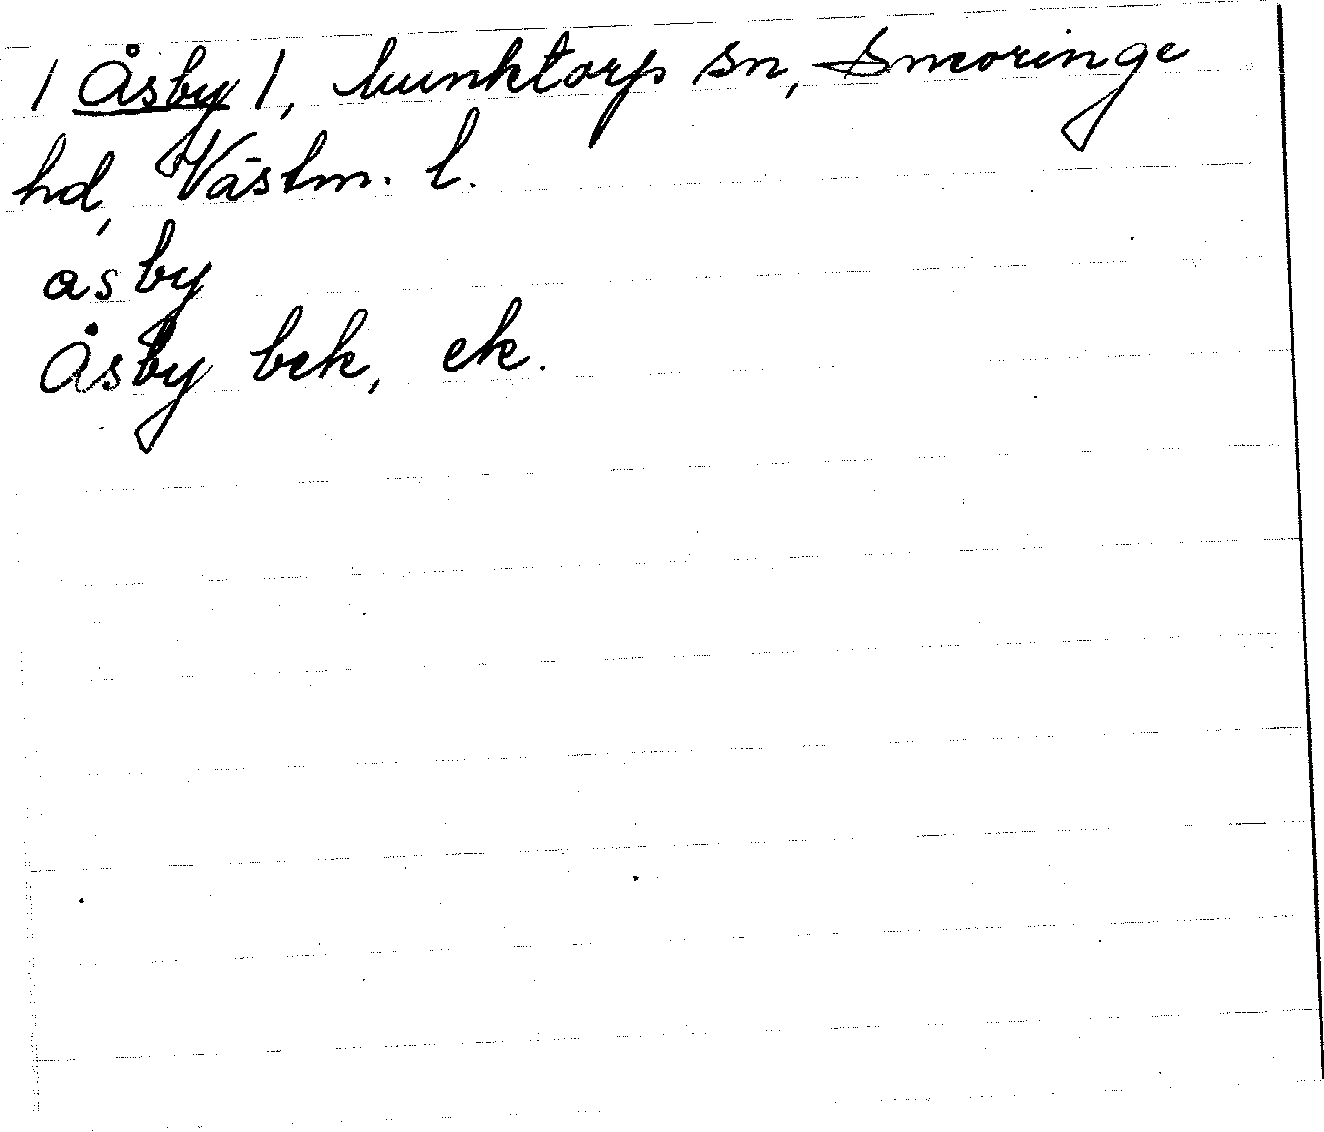 / Åsby /, Munktorp sn, Snevringe
hd, Västm. l.
åsby
Åsby bek, ek.